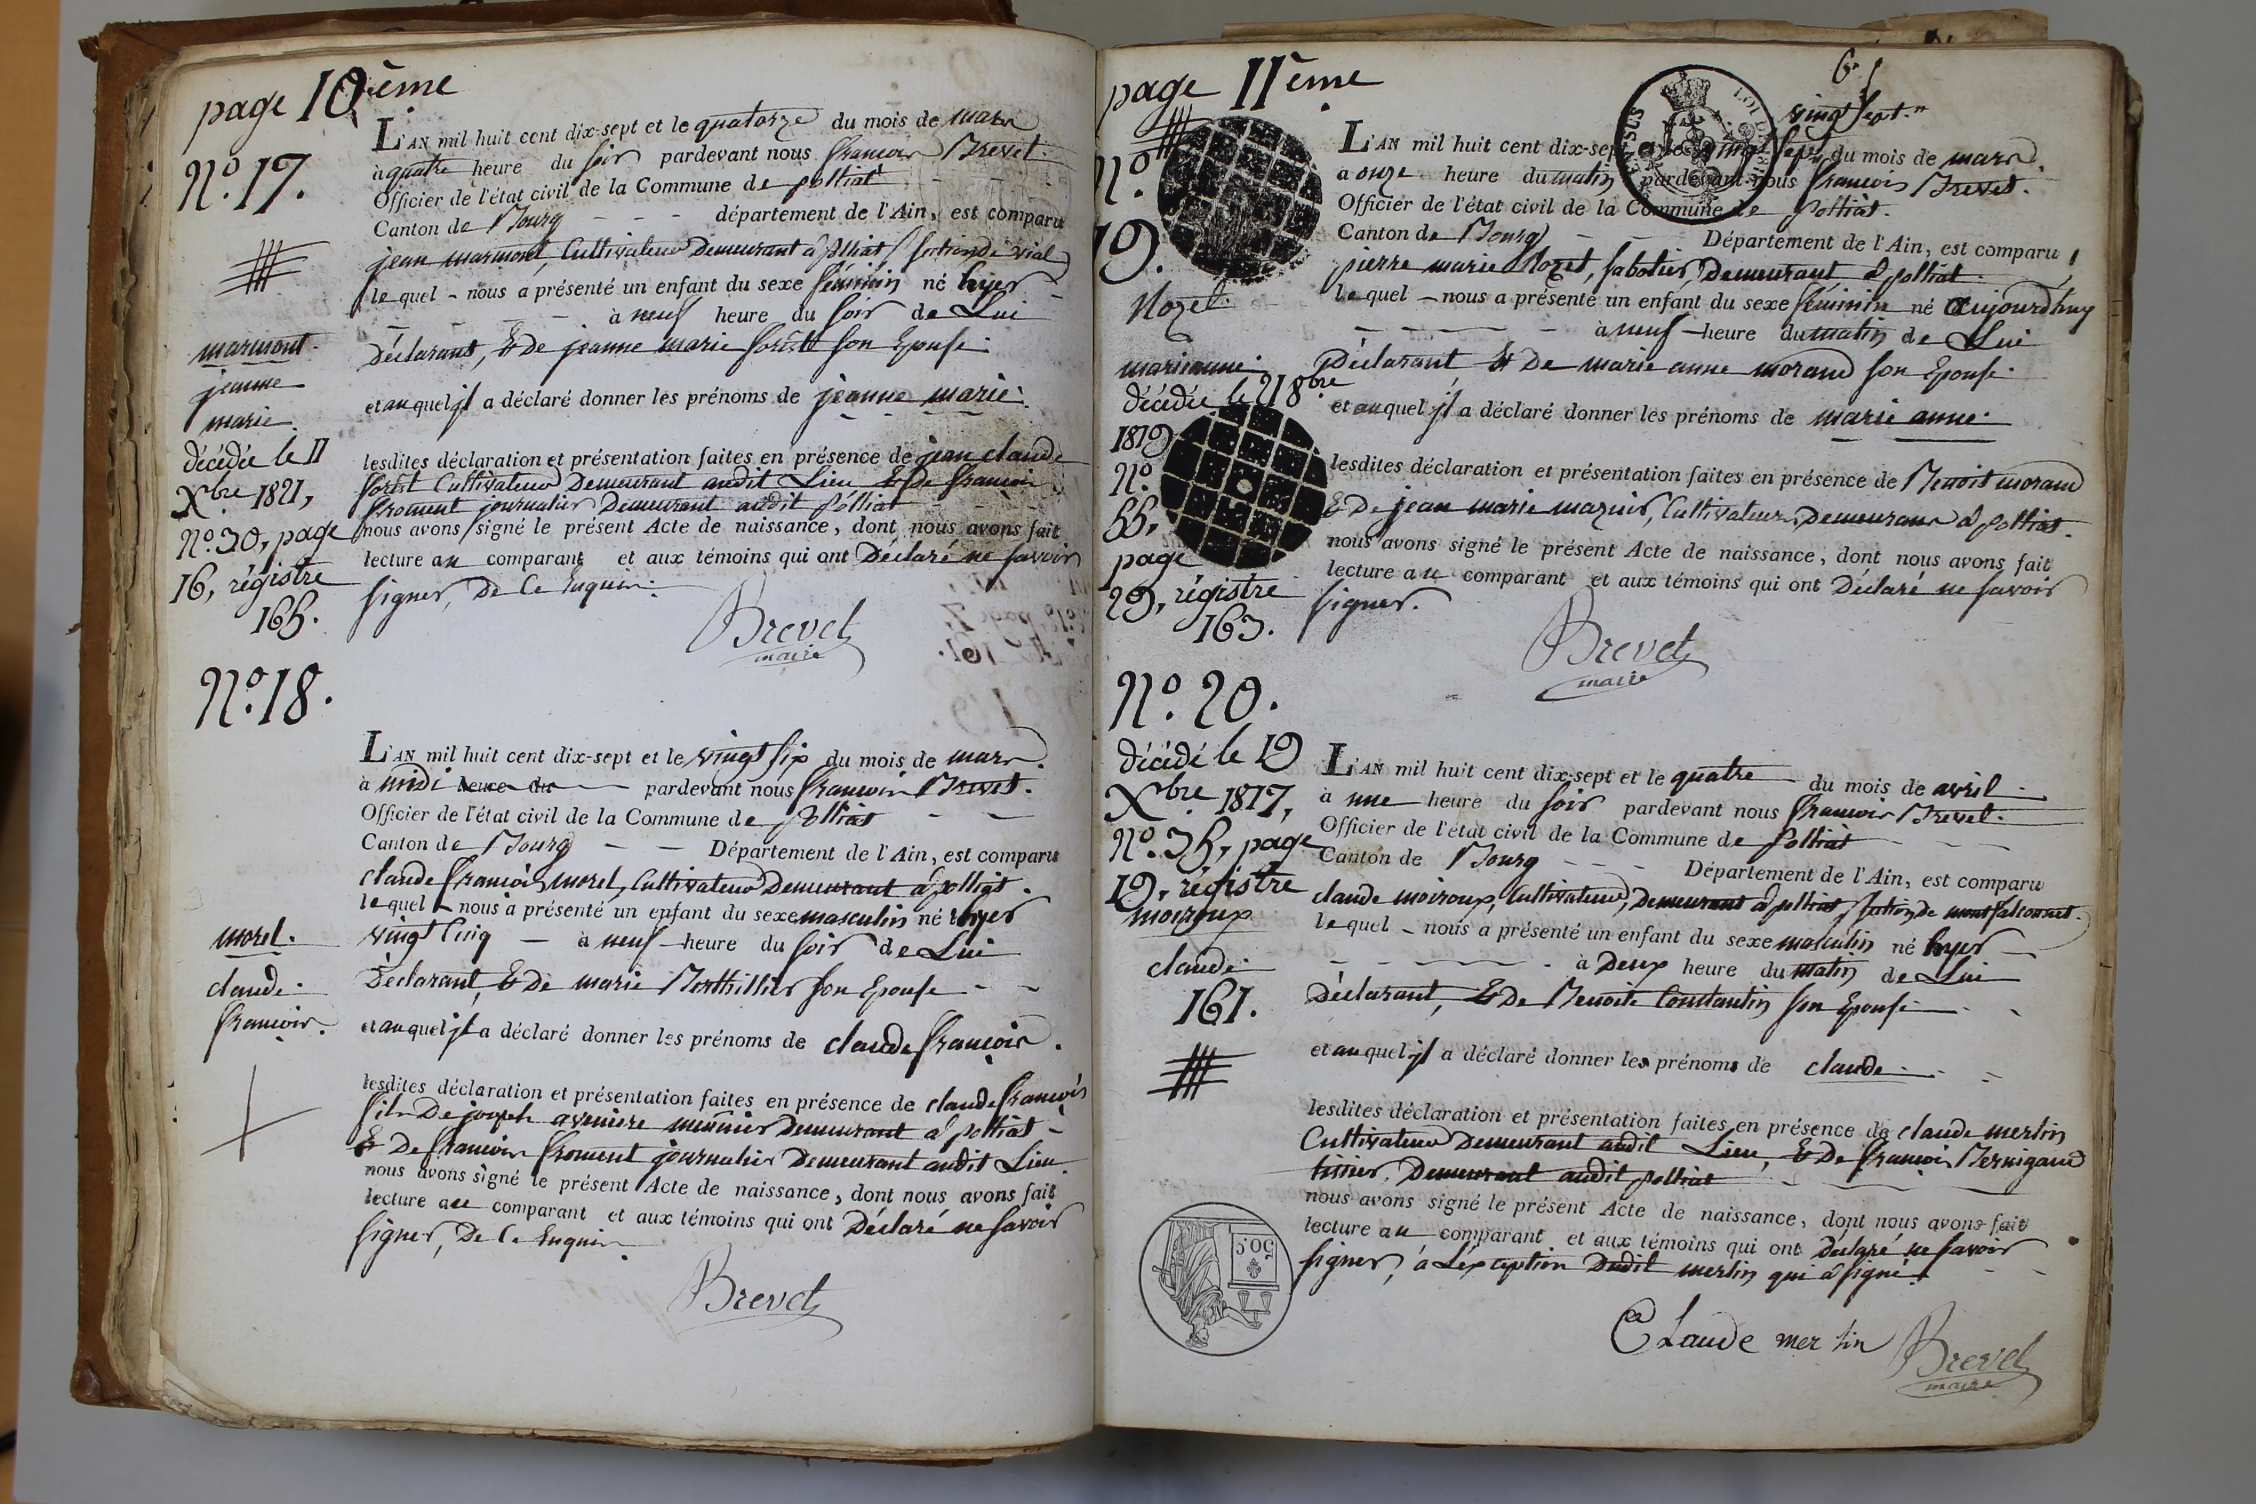 page 10ème
N.º 17.
L'AN mil huit cent dix-sept et le quatorze du mois de mars
à quatre heure du soir pardevant nous françois Brevet.
Officier de l'état civil de la Commune de polliat
Canton de Bourg département de l'Ain, est comparu
jean marmont, Cultivateur Demeurant à polliat
le quel nous a présenté un enfant du sexe féminin né hyer
à neuf heure du soir de Lui
Déclarant, & De jeanne marie son Epouse.
et au quel jl a déclaré donner les prénoms de jeanne marie.
lesdites déclaration et présentation faites en présence de jean claude
Cultivateur Demeurant audit Lieu & De françois
froment journalier Demeurant audit polliat
nous avons signé le présent Acte de naissance, dont nous avons fait
lecture au comparant et aux témoins qui ont Déclaré ne savoir
signer, De Ce Enquis.
Brevet
maire
marmont.
jeanne
marie
décédée le 11
Xbre 1821,
Nº. 30, page
16, régistre
165.
N.º 18.
L'AN mil huit cent dix-sept et le vingt six du mois de mars.
à midi heure du pardevant nous françois Brevet.
Officier de l'état civil de la Commune de polliat
Canton de Bourg Département de l'Ain, est comparu
claude françois morel, Cultivateur Demeurant à polliat.
le quel nous a présenté un enfant du sexe masculin né hyer
vingt Cinq à neuf heure du soir de Lui
Déclarant, & De marie Berthillier son Epouse
et au quel jl a déclaré donner les prénoms de claude françois.
lesdites déclaration et présentation faites en présence de claude françois
fils De joseph meûnier Demeurant à polliat
& De françois froment journalier Demeurant audit Lieu.
nous avons signé le présent Acte de naissance, dont nous avons fait
lecture au comparant et aux témoins qui ont Déclaré ne savoir
signer, De Ce Enquis.
Brevet
morel.
claude.
françois.
page 11ème
6e f
vingt sept."
Nº.
19.
L'AN mil huit cent dix-sept et le vingt sept du mois de mars.
à onze heure du matin pardevant nous françois Brevet.
Officier de l'état civil de la Commune de Polliat.
Canton de Bourg Département de l'Ain, est comparu
pierre marie Nozel, sabotier, Demeurant à polliat.
le quel nous a présenté un enfant du sexe féminin né aujourdhuy
à neuf heure du matin de Lui
Déclarant & De marie anne morand son Epouse.
et au quel jl a déclaré donner les prénoms de marie anne.
lesdites déclaration et présentation faites en présence de Benoit morand
& De jean marie mazuir, Cultivateurs Demeurans à polliat.
nous avons signé le présent Acte de naissance, dont nous avons fait
lecture au comparant et aux témoins qui ont Déclaré ne savoir
signer.
Brevet
maire
Nozel.
marieanne.
décédée le 21 8bre
1819
Nº.
55,
page
29, régistre
163.
Nº. 20.
L'AN mil huit cent dix-sept et le quatre du mois de avril
à une heure du soir pardevant nous françois Brevet.
Officier de l'état civil de la Commune de Polliat
Canton de Bourg Département de l'Ain, est comparu
claude moiroux, Cultivateur, Demeurant à polliat, section de montfalconnet.
le quel nous a présenté un enfant du sexe masculin né hyer
à Deux heure du matin de Lui
Déclarant, & De Benoite Constantin son Epouse
et au quel jl a déclaré donner les prénoms de claude.
lesdites déclaration et présentation faites en présence de claude merlin
Cultivateur Demeurant audit Lieu, & De françois Bernigaud
tissier, Demeurant audit polliat
nous avons signé le présent Acte de naissance, dont nous avons fait
lecture au comparant et aux témoins qui ont déclaré ne savoir
signer, à L'exception Dudit merlin qui a signé.
Claude merlin
Brevet
maire
décédé le 19
Xbre 1817,
Nº. 35, page
19, régistre
moiroux
claude.
161.
50.C